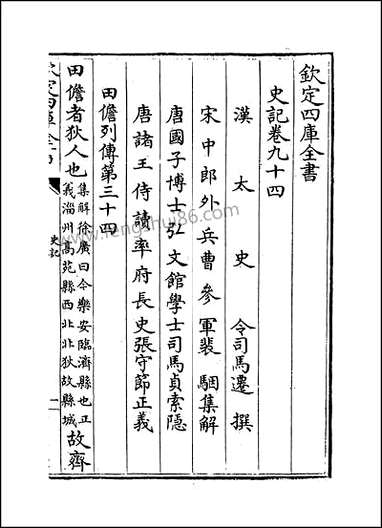 欽定四庫全書
史記卷九十四
漢太史令司馬遷撰
宋中郎外兵曹參軍裴駰集解
唐國子博士弘文館學士司馬貞索隱
唐諸王侍讀率府長史張守節正義
田儋列傳第三十四
田儋者狄人也集解徐廣曰今樂安臨濟縣也正
義淄州高苑縣西北北狄故縣城故齊
史記
一